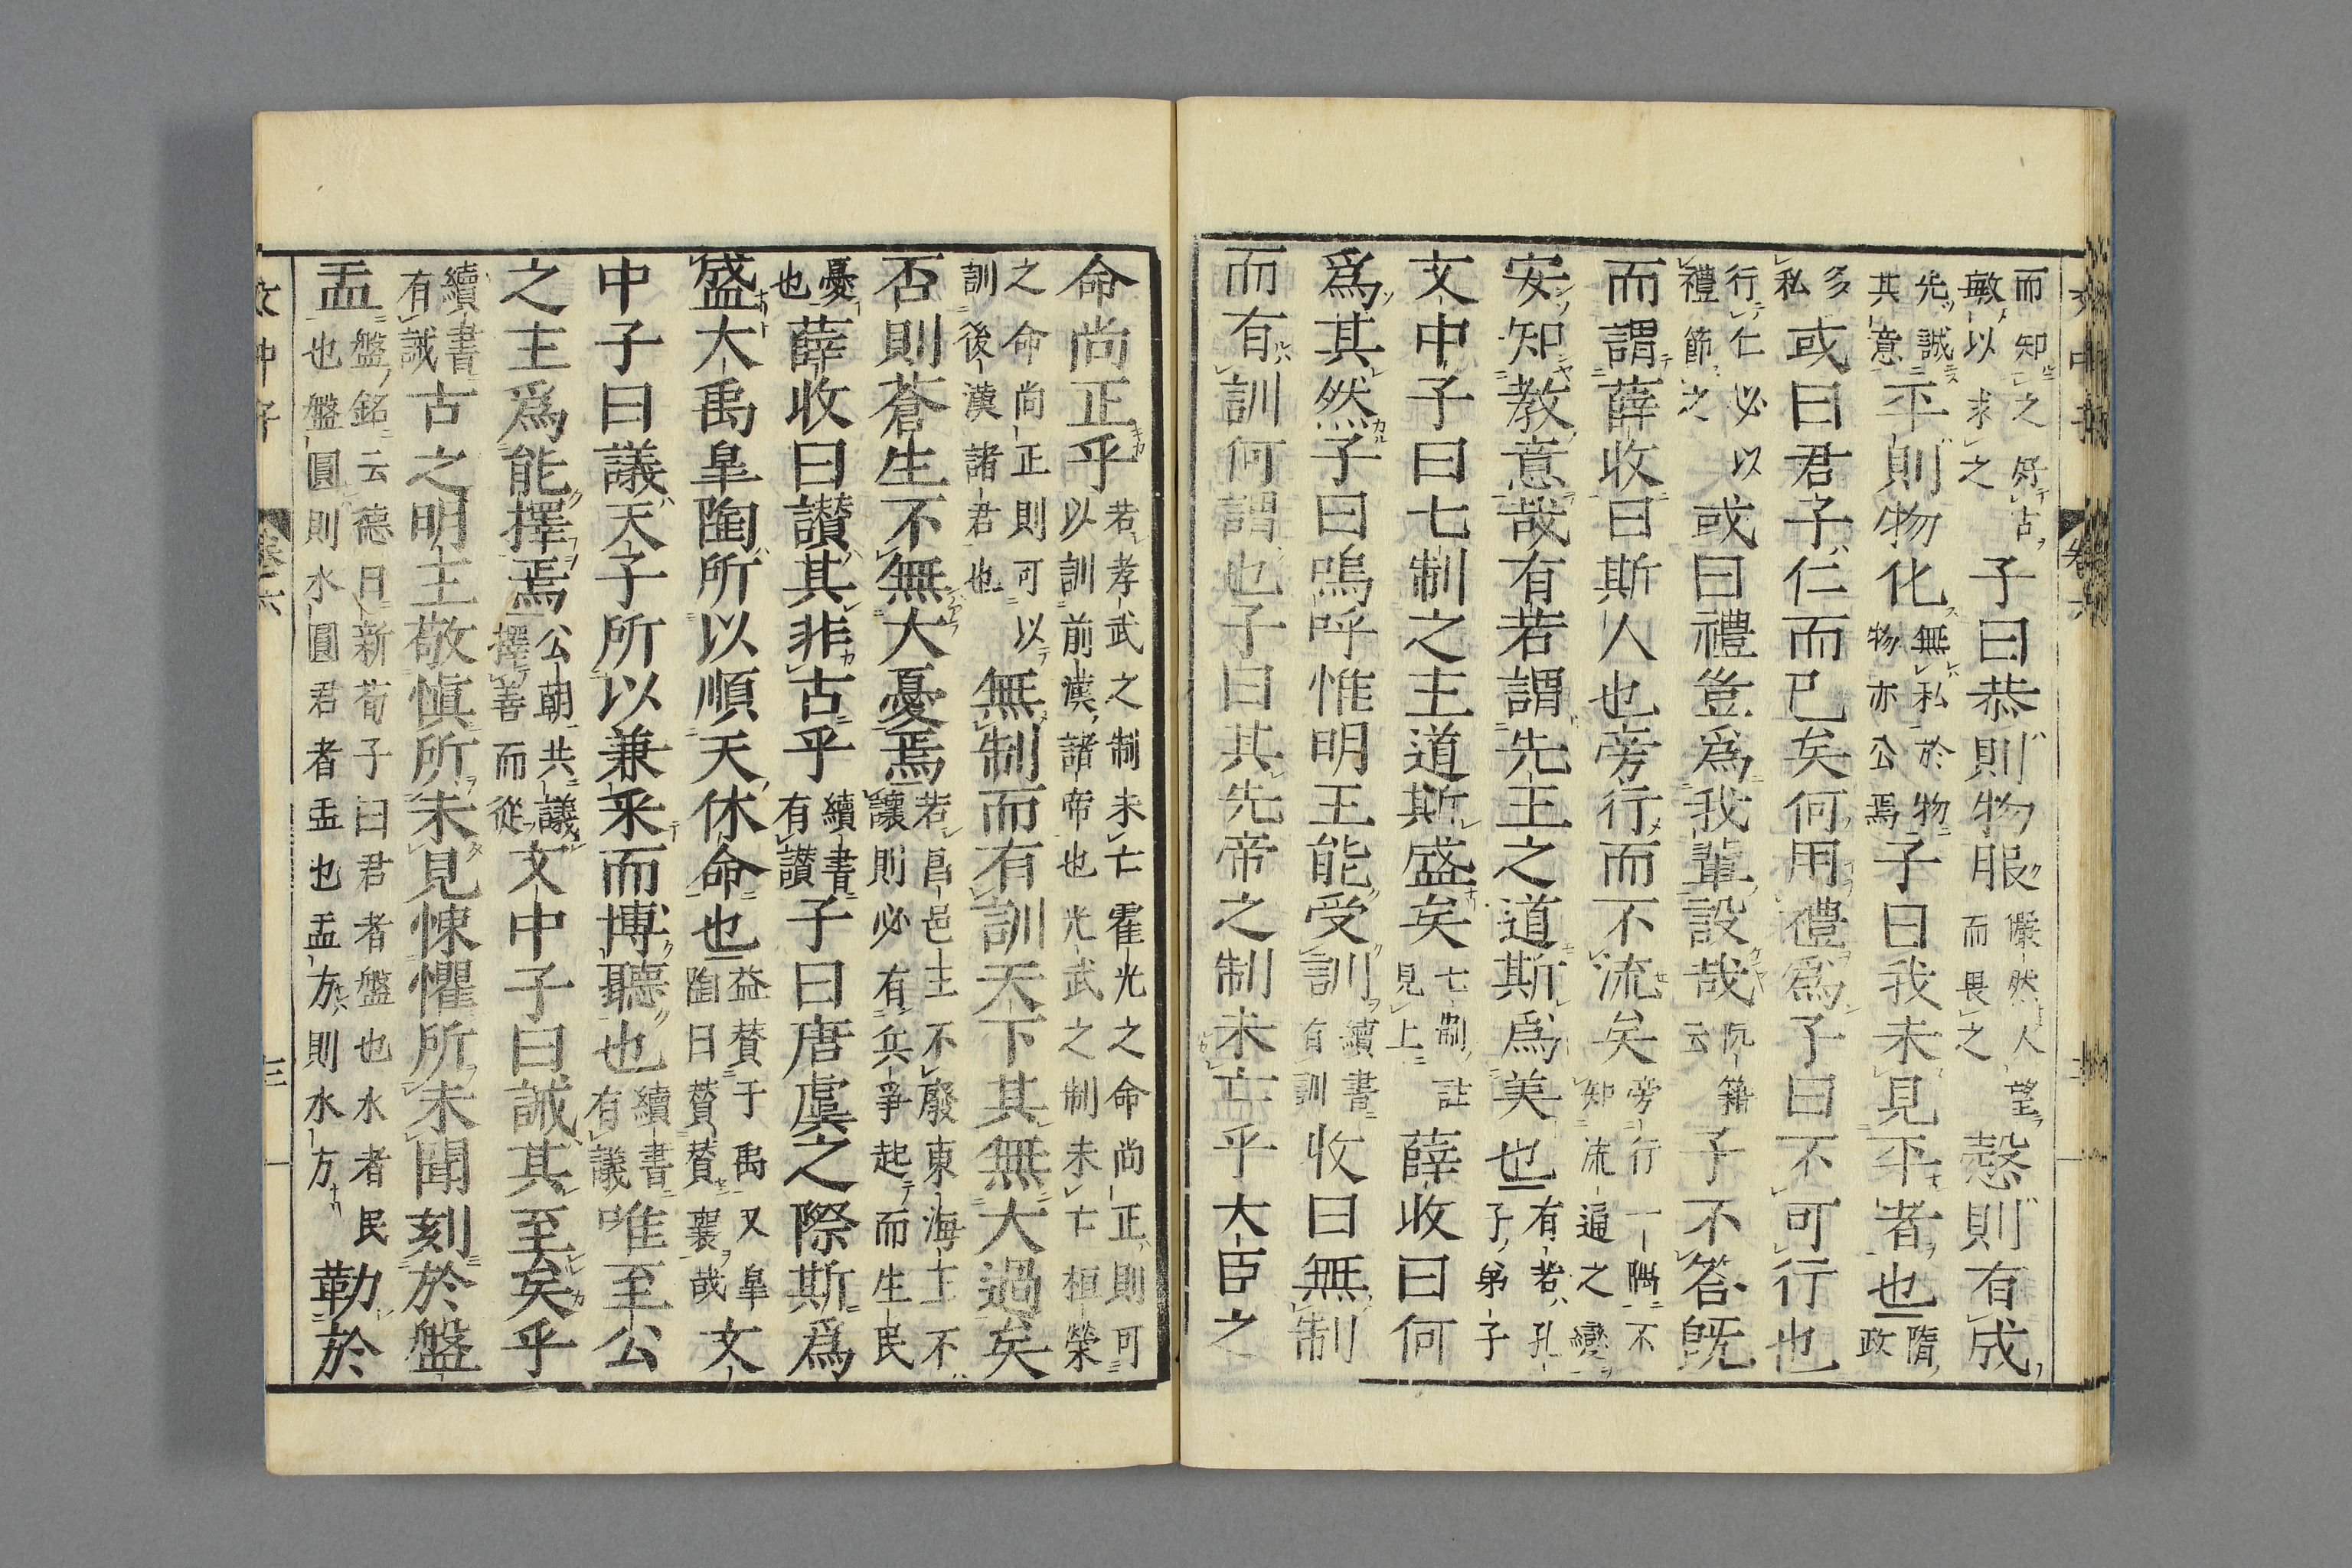 而知之好古敏以求之子曰恭則物服儼然人望而畏之慤則有成
先誠其意平則物化無私於物物亦公焉子曰我未見平者也隋政
多私或曰君子仁而已矣何用禮爲子曰不可行也
行仁必以禮節之或曰禮豈爲我輩設哉阮籍云子不答旣
而謂薛收曰斯人也旁行而不流矣旁行一隅不知流通之變
安知教意哉有若謂先王之道斯爲美也有若孔子弟子
文中子曰七制之主道斯盛矣七制註見上薛收曰何
爲其然子曰嗚呼惟明王能受訓續書有訓收曰無制
而有訓何謂也子曰其先帝之制未亡乎大臣之
命尚正乎若孝武之制未亡霍光之命尚正則可以訓前漢諸帝也光武之制未亡桓榮
之命尚正則可以訓後漢諸君也無制而有訓天下其無大過矣
否則蒼生不無大憂焉若昌邑主不廢東海王不讓則必有兵爭起而生民
憂也薛收曰讃其非古乎續書有讃子曰唐虞之際斯爲
盛大禹皐陶所以順天休命也益賛于禹又皐陶曰賛賛襄哉文
中子曰議天子所以兼采而博聽也續書有議唯至公
之主爲能擇焉公朝共議擇善而從文中子曰誡其至矣乎
續書有誡古之明王敬愼所未見悚懼所未聞刻於盤
盂盤銘云德日新荀子曰君者盤也水者民也盤圓則水圓君者盂也盂方則水方勒於
文中子 卷六 三